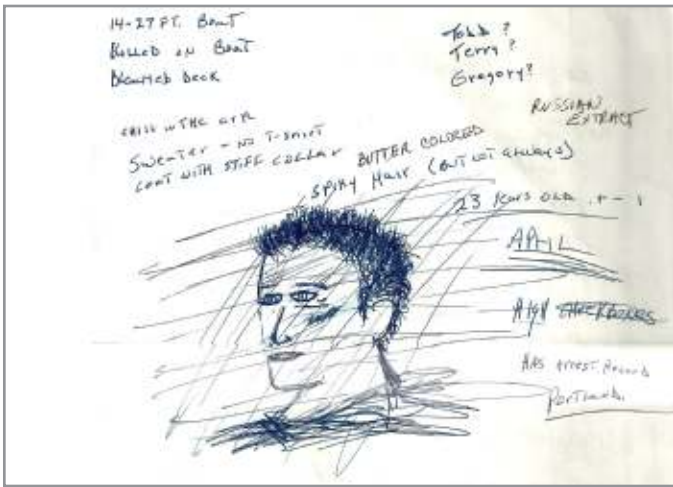 14-27 FT. BOAT
KILLED ON BOAT
BLEACHED DECK
Todd?
Terry?
Gregory?
RUSSIAN
EXTRACT
CHILL IN THE AIR
SWEATER - NO T-SHIRT
COAT WITH STIFF COLLAR
BUTTER COLORED
SPIKY HAIR (BUT NOT ALWAYS)
23 YEARS OLD + - 1
APRIL
HIGH CHEEKBONES
HAS ARREST RECORD
PORTLAND.